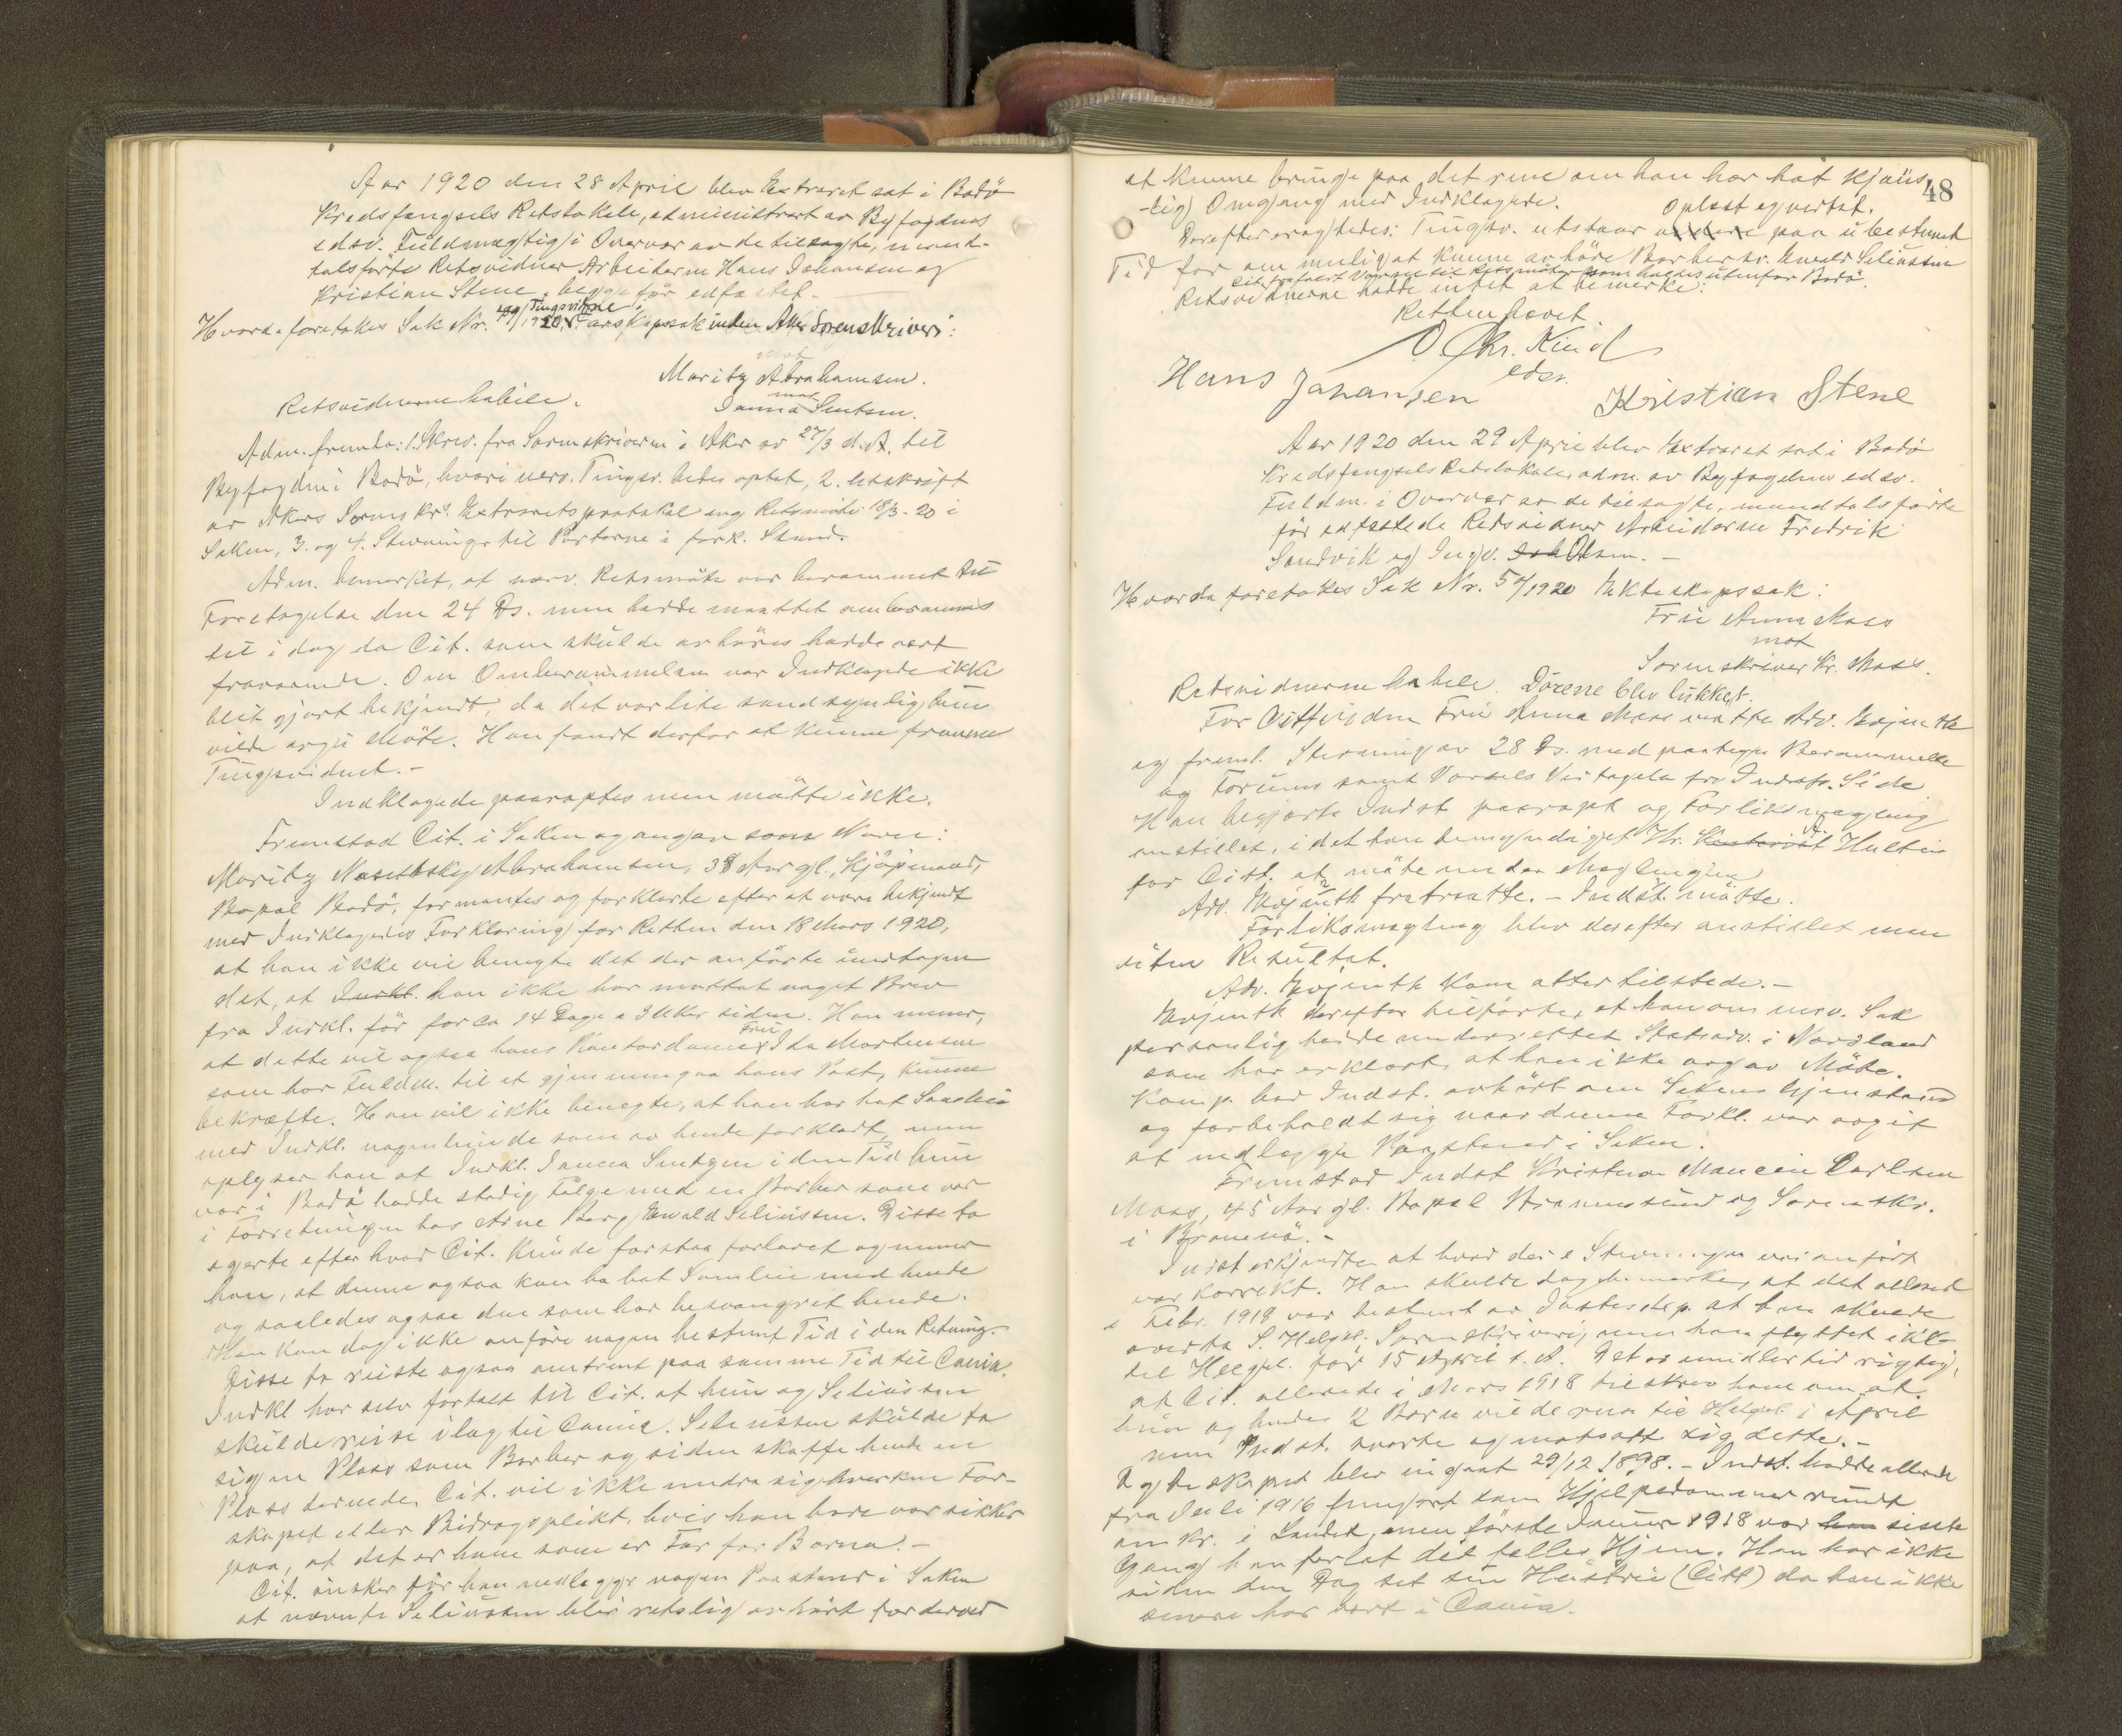 Aar 1920 den 28 April blev Extraret sat i Bodö
Kredsfængsels Retslokale, administrert av Byfogdens
edsv. Fuldmægtig i Overvær av de tilsagte, mand-
talsförte Retsvidner Arbeiderne Hans Johansen og
Kristian Stene, begge för edfæstet.
Hvorda foretokes Sak Nr. 49/1920 Tingsvidne i Farskapssak inden Aker Sorenskriveri:
Moritz Abrahamsen.
mot
Janna Sentsen.
Retsvidnerne habile.
Adm. fremla: 1. Skriv. fra Sorenskriveren i Aker av 27/3 d.A. til
Byfogden i Bodö, hvori nerv. Tingsv. bedes optat, 2. Utskrift
av Akers Sorenskrs. Extraretsprotokol ang Retsmöte 18/3-20 i
Saken, 3. og 4. Stevninger til Parterne i fork. Stand.
Adm. bemerket, at nærv. Retsmöte var berammet til
Foretagelse den 24 Ds. men hadde maattet omberammes
til i dag da Cit. som skulde avhöres hadde vært
fraværende. Om Omberammelsen var Indklagede ikke
blit gjort bekjendt, da det var lite sandsynlig hun
vilde avgi Möte. Han fandt derfor at kunne fremme
Tingsvidnet.-
Indklagede paaroptes men mötte ikke.
Fremstod Cit. i Saken og angav som Navn:
Moritz Abrahamsen, 38 Aar gl., Kjöpmand,
Bopæl Bodö, formantes og forklarte efter at være bekjendt
med Indklagedes Forklaring for Retten den 18 Mars 1920,
at han ikke vil benegte det der anförte undtagen
det, at Indkl. han ikke har mottat noget Brev
fra Indkl. för for ca 14 Dage a 3 Uker siden. Han mener,
at dette vil ogsaa hans Kontordame Frü Ida Mortensen
som har Fuldm. til at gjennemgaa hans Post, kunne
bekræfte. Han vil ikke benegte, at han har hat Samleie
med Indkl. nogenlunde som av hende forklart, men
oplyser han at Indkl. Janna Sentzen i den Tid hun
var i Bodö hadde stadig Fölge med en Barber som var
i Forretningen hos Arne Berg, Ewald Seliussen. Disse to
sværte efter hvad Cit. kunde forstaa forlovet og mener
han, at denne ogsaa kan ha hat Samleie med hende
og saaledes ogsaa den som har besvangret hende.
Han kan dog ikke anföre nogen bestemt Tid i den Retning.
Disse to reiste ogsaa omtrent paa samme Tid til Cania.
Indkl har selv fortalt til Cit. at hun og Seliussen
skulde reise ilag til Cania. Seliussen skulde ta
sig en Plass som Barber og siden skaffe hende en
Plass dernede. Cit. vil ikke undra sig hverken Far-
skapet eller Bidragsplikt, hvis han bare var sikker
paa, at det er ham som er Far for Barna.-
Cit. önsker för han nedlægger nogen Paastand i Saken
at nævnte Seliussen blir retslig avhört for derved
48
at kunne bringe paa det rene om han har hat kjöns-
-lig Omgang med Indklagede. Oplæst og vertat.
Derefter eragtedes: Tingsv. utstaar paa ubestemt
Tid for om mulig at kunne avhöre Barbersv. Ewald Seliussen
Cit. frafaldt Varsel til Retsmöter som holdes utenfor Bodö.
Retsvidnerne hadde intet at bemerke.
Retten hævet.
O Chr. Kiil
edsv.
Hans Johansen Kristian Stene
Aar 1920 den 29 April blev Extraret sat i Bodö
Kredsfængsels Retslokale, adm. av Byfogdens edsv.
Fuldm. i Overvær av de tilsagte, mandtalsförte
för edfæstede Retsvidner Arbeiderne Fredrik
Sandvik og Ingv. Olsen.-
Hvorda foretokes Sak Nr. 50/1920 Ekteskapssak:
Frü Anna Maas
mot
Sorenskriver Kr. Maas.
Retsvidnerne habile. Dörene blev lukket.
For Citfinden Frü Anna Maas mötte Adv. Mejnith
og freml. Stevning av 28 Ds. med paategn Berammelse
og Forum samt Varsels Vedtagelse fra Indst. Side
Han begjærte Indst paaropt og Forliksmegling
anstillet, idet han bemyndiget Hr. Hultin
for Citt. at möte under Meglingen
Adv. Mejnith fratraatte.- Indst. mötte.
Forliksmegling blev derefter anstillet men
uten Resultat.
Adv. Mejnith kom atter tilstede.-
Mejnith derefter tilförte, at han om nærv. Sak
personlig hadde underrettet Statsadv. i Nordland
som har erklært, at han ikke avgav Möte.
Komp. bad Indst. avhört om Sakens Gjenstand
og forbeholdt sig naar denne Forkl. var avgit
at nedlægge Paastand i Saken.
Fremstod Indst Kristian Carlsen
Maas, 45 Aar gl. Bopæl Brönnösund og Sorenskr.
i Brönnö.-
Indst erkjendte at hvad der i Stevningen var anfört
var korrekt. Han skulde dog bemerke, at det allered
i Febr. 1918 var bestemt av Justisdep. at han skulde
overta S. Helgel. Sorenskriveri, men han flyttet ikke
til Helgel. för 15 April s. A. Det er imidlertid rigtig,
at Cit. allerede i Mars 1918 tilskrev ham om at
hun og hendes 2 Barn vilde reise til Helgel i April
men Indst. svarte og motsatt sig dette.-
Egteskapet blev ingaat 29/12 1898.- Indst. hadde allerede
fra Juli 1916 fungert som Hjelpedommer rundt
om kr. i Landet, men förste Januar 1918 var han siste
Gang han forlot det fælles Hjem. Han har ikke
siden den Dag set sin Hustru (Citt) da han ikke
senere har vært i Cania.